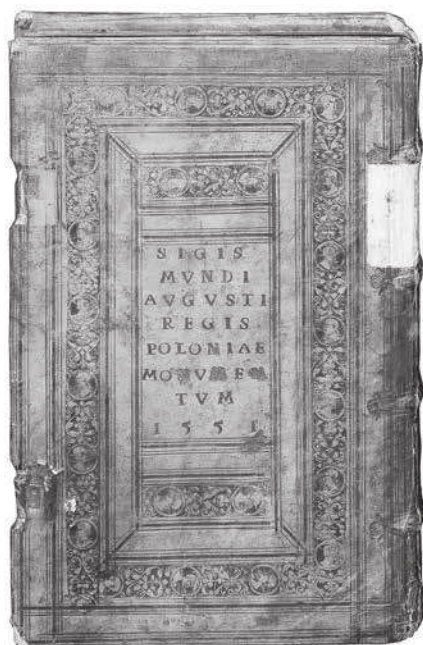 SIGIS
MVNDI
AVGVSTI
REGIS
POLONIAE
MONVMEN
TVM
1551